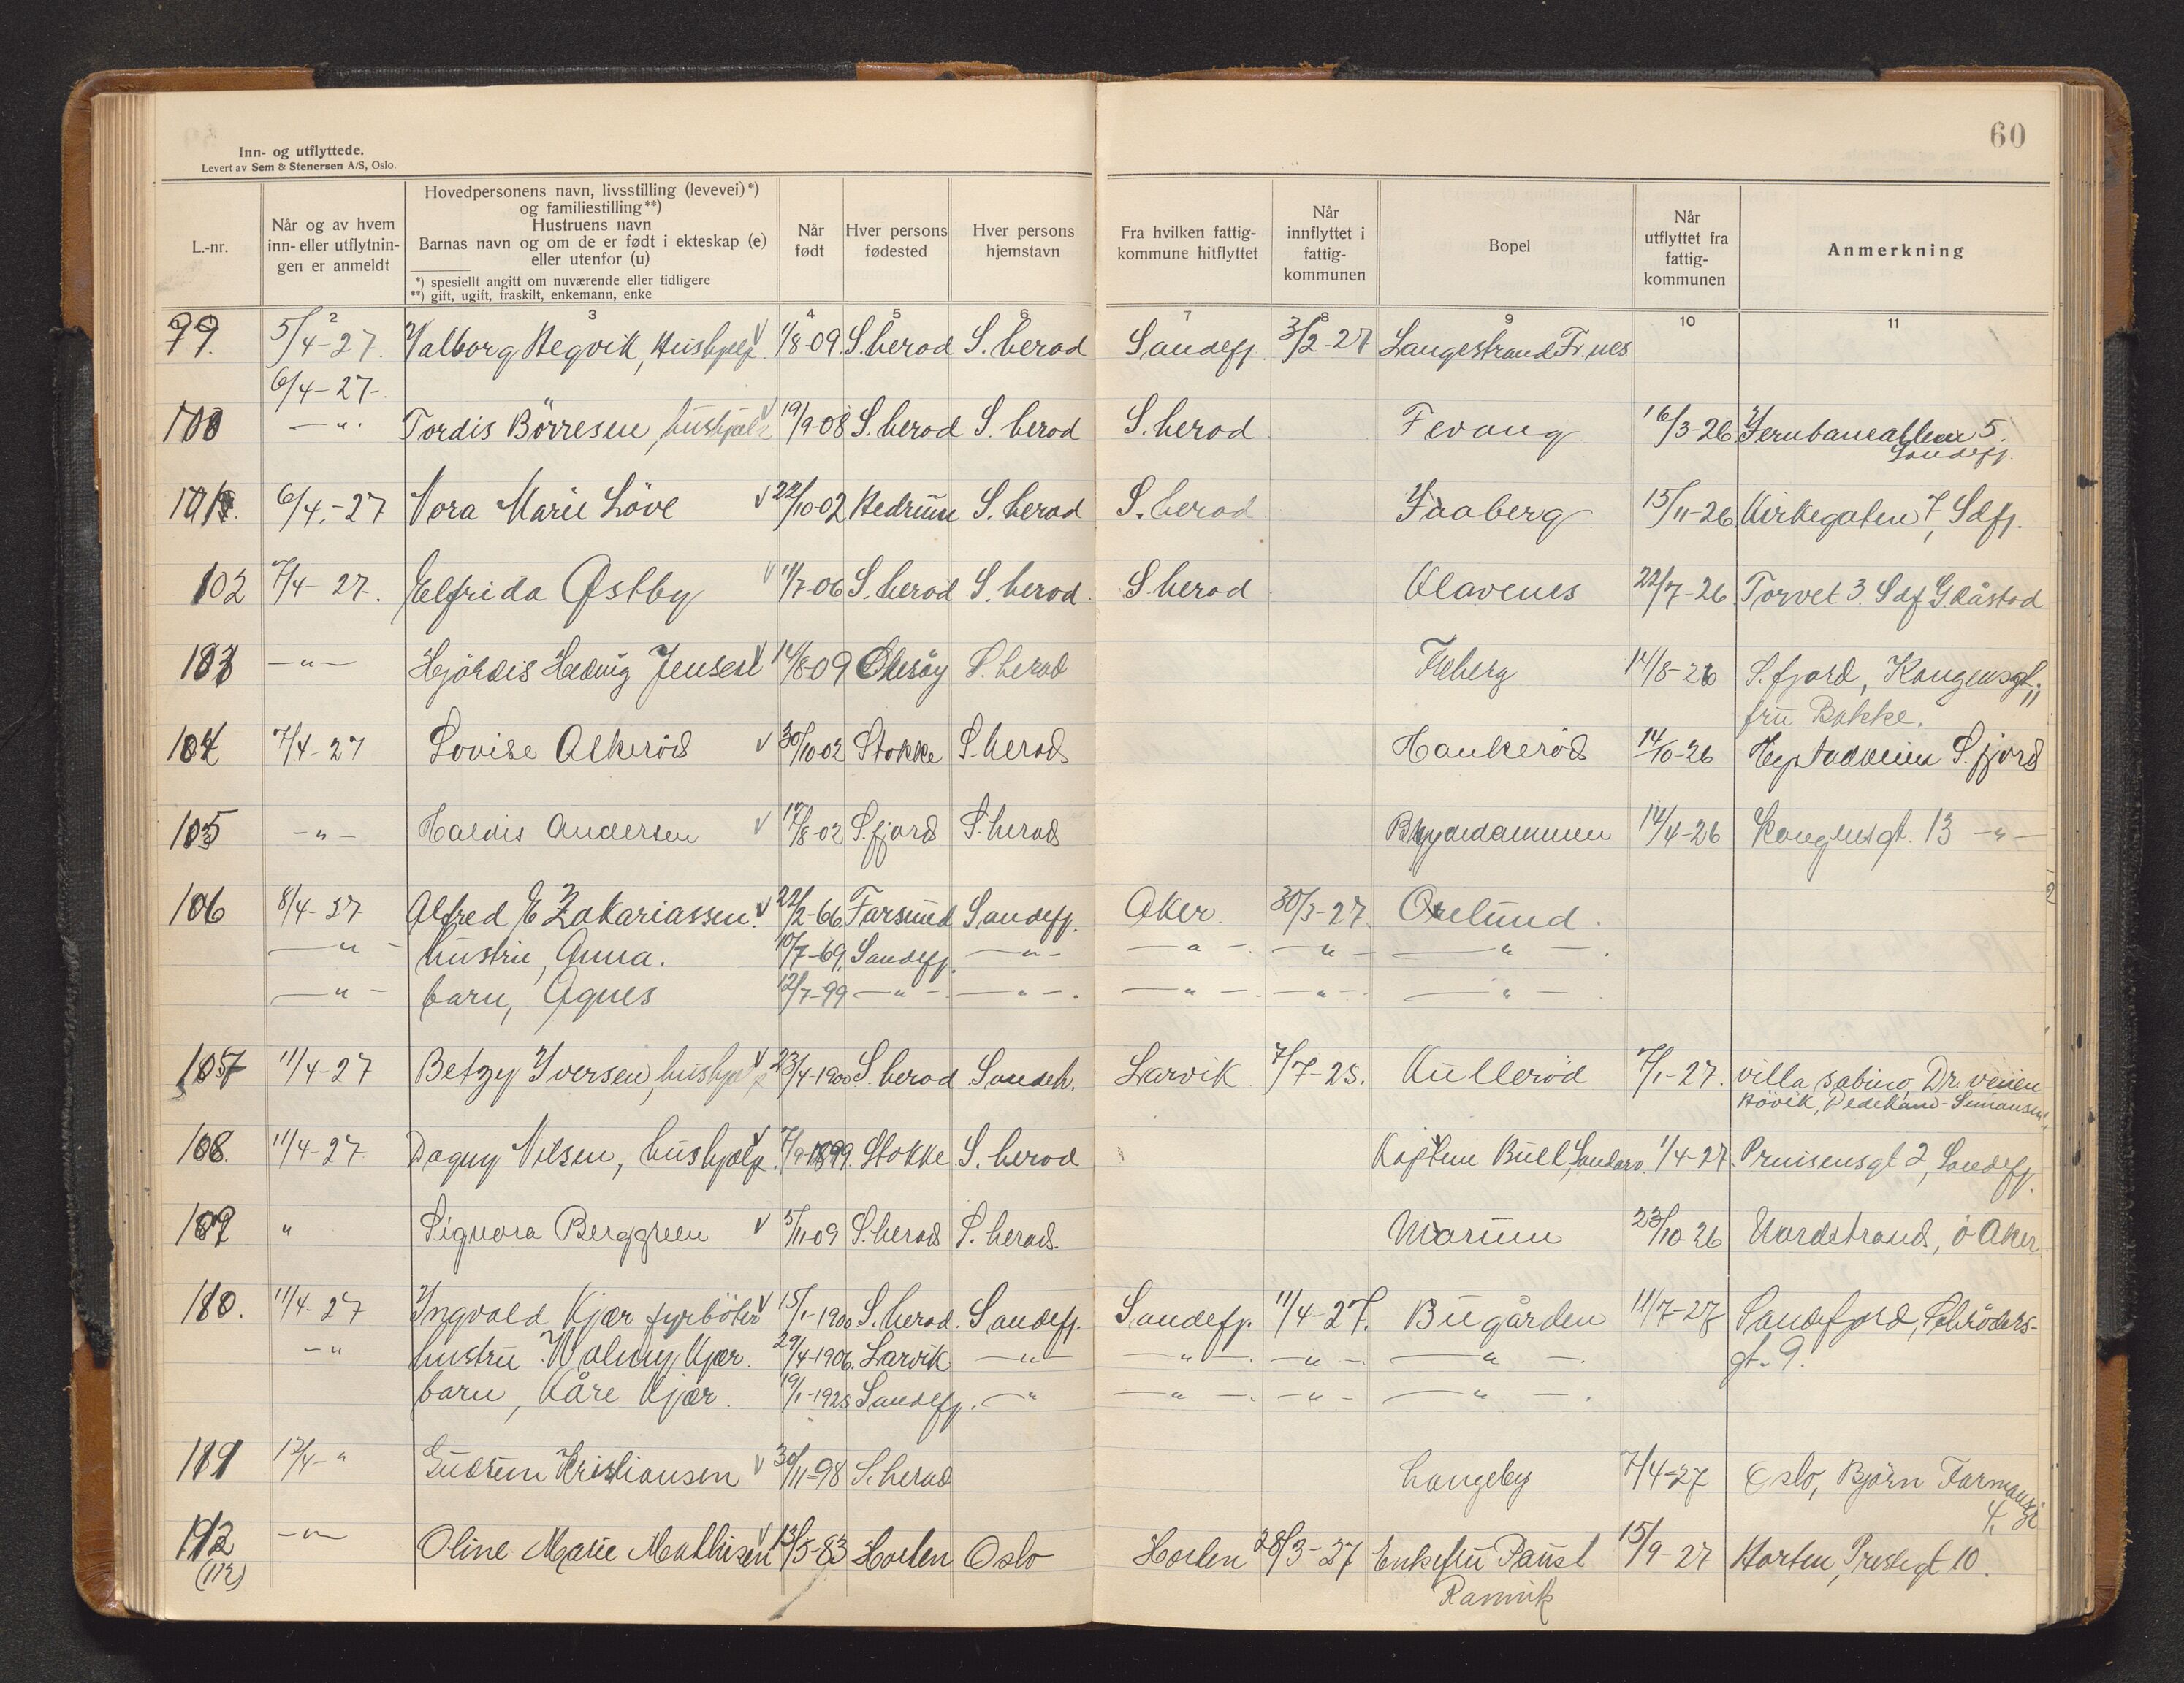 60
Inn- og utflyttede.
Levert av Sem & Stenersen A/S, Oslo.
L.-nr.
Når og av hvem
inn- eller utflytnin-
gen er anmeldt
Hovedpersonens navn, livsstilling (levevei)*)
og familiestilling**)
Hustruens navn
Barnas navn og om de er født i ekteskap (e)
eller utenfor (u)
*) spesiellt angitt om nuværende eller tidligere
**) gift, ugift, fraskilt, enkemann, enke
Når
født
Hver persons
fødested
Hver persons
hjemstavn
Fra hvilken fattig-
kommune hitflyttet
Når
innflyttet i
fattig-
kommunen
Bopel
Når
utflyttet fra
fattig-
kommunen
Anmerkning
2 3 4 5 6 7 8 9 10 11
99. 5/4-27. Valborg Hegvik, Hushjelp V 1/8-09 S.herad S. herad Sandefj. 3/2-27 Langestrand Fr.nes
6/4-27-.
100 —"— Tordis Börresen, hushjælp V 19/9-08 S.herad S. herad S.herad Fevang 16/3-26 Jernbanealleen 5.
Sandefj.
101. 6/4.-27 Nora Marie Löve V 22/10-02 Hedrum S. herad S. herad Jaaberg 15/11-26 Kirkegaten 7, Sdfj.
102 7/4-27. Elfrida Østby V 11/7-06 S.herad S. herad. S.herad Klavenes 22/7-26. Torvet 3. Sdf G.Råstad
103 —"— Hjördis Hedvig Jensen V 14/8-09 S. herad 14/8-26 S.fjord, Kongensgt. 11
fru Bakke.
104 7/4-27 Lovise Askeröd V 30/10-02 Stokke S.herad Haukeröd 14/10-26 S.fjord
105 —"— Haldis Andersen V 17/8-02 S.fjord S.herad 14/4-26 Kongensgt. 13 —"—
106 8/4-27 Alfred E Zakariassen. V 22/2-66 Farsund Sandefj. Aker. 30/3-27. Orelund.
—"— hustru, Anna. 10/7-69. Sandefj. —"— —"— —"— —"—
—"— barn, Agnes 12/7-99 —"— —"— —"— —"— —"—
107 11/4-27 Betzy Iversen, hushjælp V 23/4-1900 S.herad Sandeh. Larvik 7/7-25. Kulleröd 7/1-27. villa sabino, Dr. veien
Hövik,
108. 11/4-27 Dagny Nilsen, hushjælp V 7/9-1899. Stokke S. herad Kaptein Bull, Sandar. 1/4-27. Prinsensgt 2, Sandefj.
109 " Signora Berggreen V 5/11-09 S.herad S. herad. Marum 23/10-26 Nordstrand, ö Aker
110. 11/4-27 Ingvald Kjær fyrböter V 15/1-1900 S.herad. Sandefj. Sandefj. 11/4-27. Bugården 11/7-27 Sandefjord, Schröders-
—" hustru Valmy Kjær. 29/4-1906. Larvik —"— —"— —"— —"— gt. 9.
barn, Kåre Kjær. 19/1-1925 Sandefj. —" —"— —"— —"—
111 12/4-" Gudrun Kristiansen V 30/11-98 S.herad Langeby 7/4-27 Oslo, Björn Farmansgt
4,
112 —"— Oline Marie Mathisen V 13/5-83 Horten Oslo Horten 28/3-27 Enkefru Paust 15/9-27 Horten, Prestegt 10.
(112) Ranvik